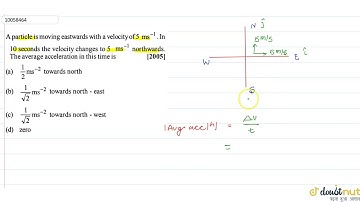 10058464
A particle is moving eastwards with a velocity of 5 ms⁻¹. In
10 seconds the velocity changes to 5 ms⁻¹ northwards.
The average acceleration in this time is [2005]
(a) 1/2 ms⁻² towards north
(b) 1/√2 ms⁻² towards north - east
(c) 1/√2 ms⁻² towards north - west
(d) zero
N ĵ
5m/s
5m/s
W E î
S
|Avg·accⁿ| = Δv/t
=
doubtnut